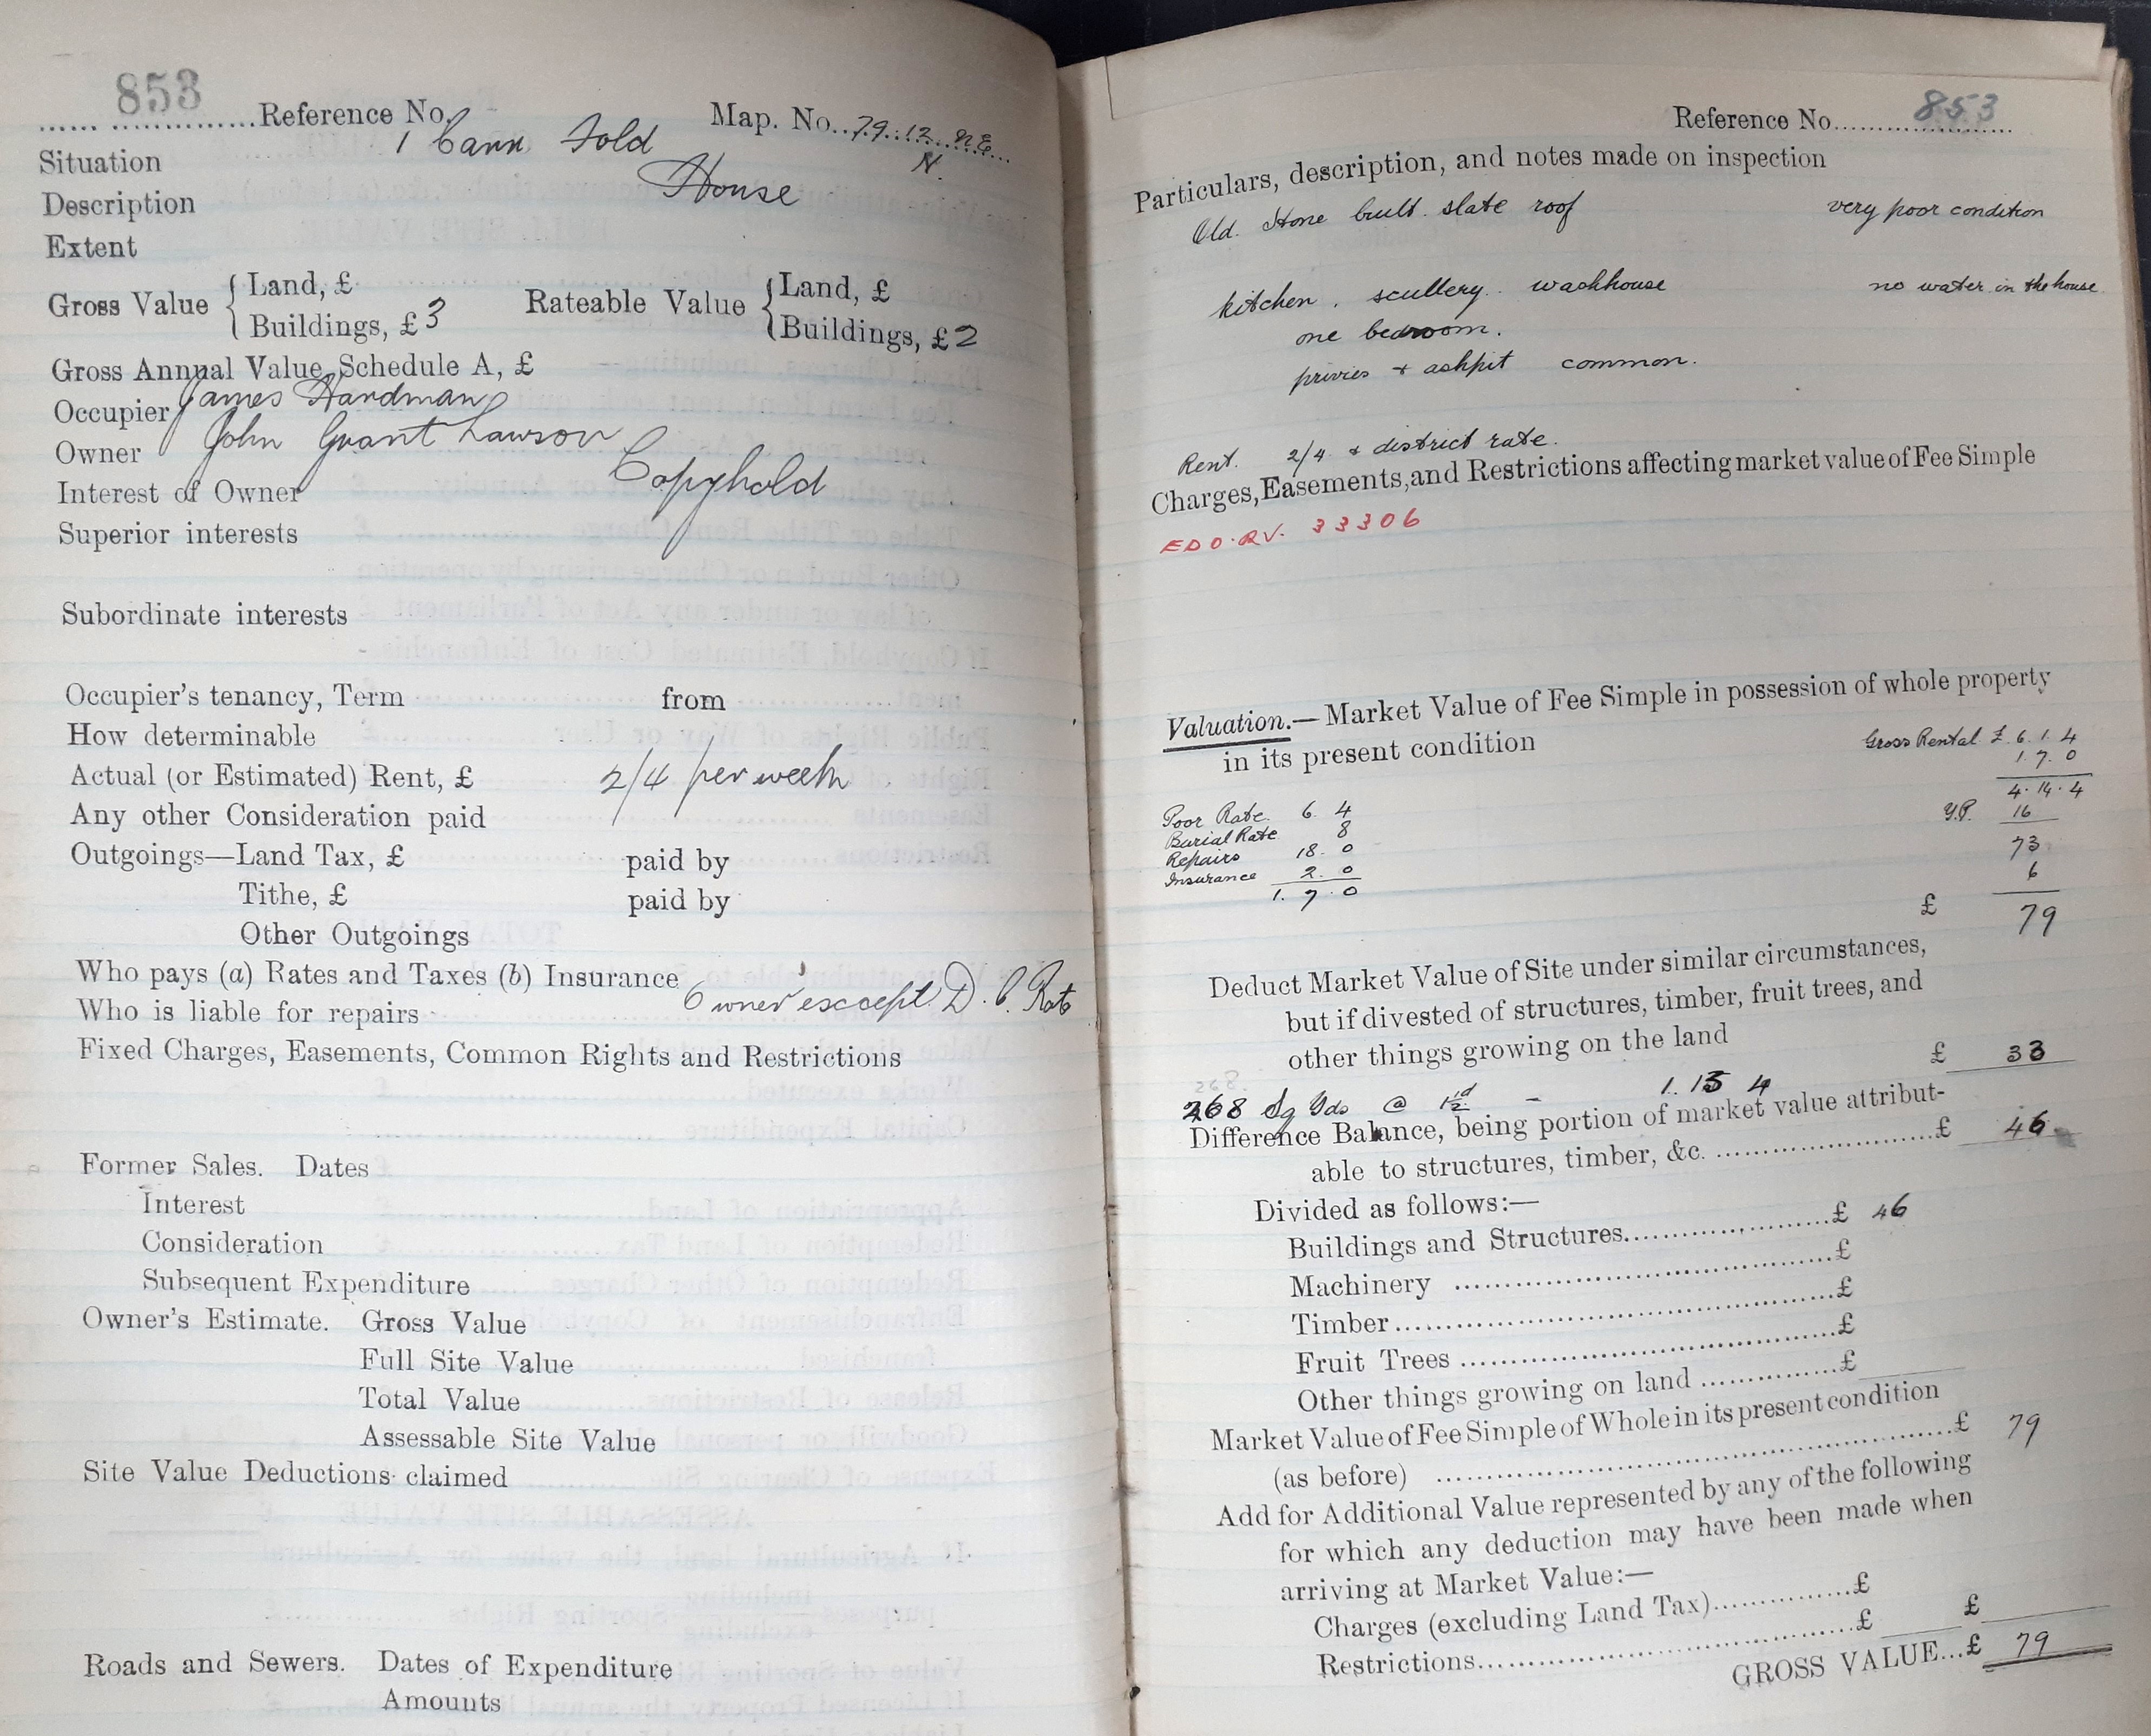 853
Reference No.
Map. No. 79.12 NE
N.
Situation 1 Cann Fold
Description House
Extent
Gross Value { Land, £
Buildings, £ 3
Rateable Value { Land, £
Buildings, £ 2
Gross Annual Value, Schedule A, £
Occupier James Hardman
Owner John Grant Lawson
Interest of Owner Copyhold
Superior interests
Subordinate interests
Occupier's tenancy, Term from
How determinable
Actual (or Estimated) Rent, £ 2/4 per week
Any other Consideration paid
Outgoings—Land Tax, £ paid by
Tithe, £ paid by
Other Outgoings
Who pays (a) Rates and Taxes (b) Insurance
Who is liable for repairs Owner except D. C. Rate
Fixed Charges, Easements, Common Rights and Restrictions
Former Sales. Dates
Interest
Consideration
Subsequent Expenditure
Owner's Estimate. Gross Value
Full Site Value
Total Value
Assessable Site Value
Site Value Deductions claimed
Roads and Sewers. Dates of Expenditure
Amounts
Reference No. 853
Particulars, description, and notes made on inspection
Old. Stone built. slate roof very poor condition
kitchen. scullery. washhouse no water in the house
one bedroom.
privies + ashpit common.
Rent. 2/4 + district rate.
Charges, Easements, and Restrictions affecting market value of Fee Simple
EDO.RV. 33306
Valuation.—Market Value of Fee Simple in possession of whole property
in its present condition
Gross Rental £ 6. 1. 4
1. 7. 0
4. 14. 4
Y.P. 16
73
6
£ 79
Poor Rate 6. 4
Burial Rate 8
Repairs 18. 0
Insurance 2. 0
1. 7. 0
Deduct Market Value of Site under similar circumstances,
but if divested of structures, timber, fruit trees, and
other things growing on the land £ 33
268.
268 Sq Yds @ 1½d - 1. 13 4
Difference Balance, being portion of market value attribut-
able to structures, timber, &c. £ 46
Divided as follows:—
Buildings and Structures £ 46
Machinery £
Timber £
Fruit Trees £
Other things growing on land £
Market Value of Fee Simple of Whole in its present condition
(as before) £ 79
Add for Additional Value represented by any of the following
for which any deduction may have been made when
arriving at Market Value:—
Charges (excluding Land Tax) £
Restrictions £ £
GROSS VALUE...£ 79